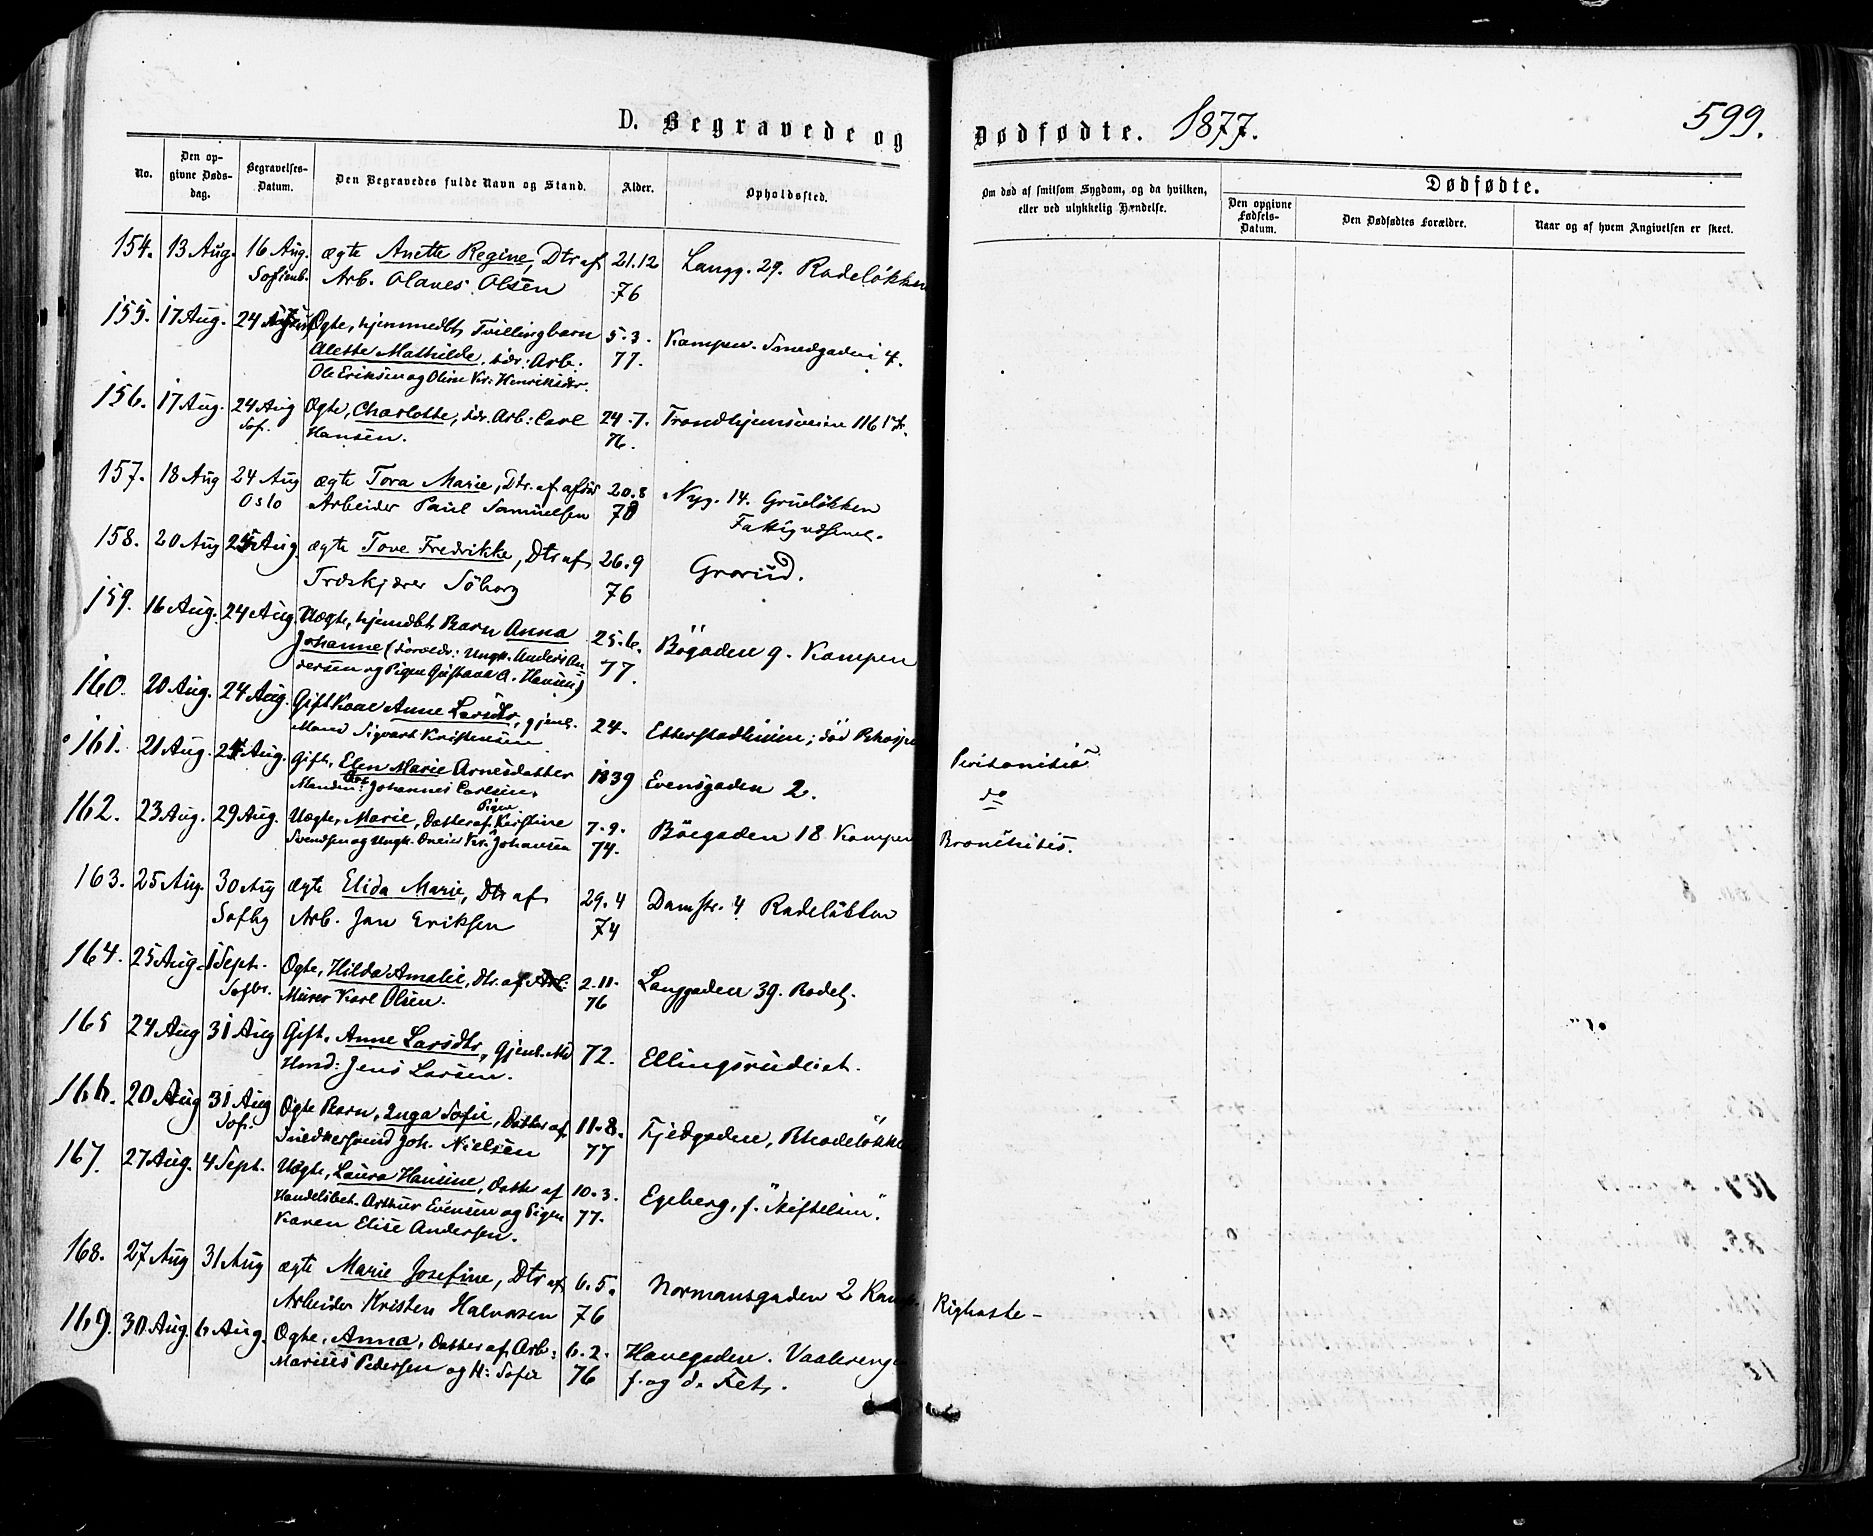 D. Begravede og Dødfødte. 1877. 599.
No.
Den opgivne Dødsdag.
Begravelses-Datum.
Den Begravedes fulde Navn og Stand.
Alder.
Opholdssted.
Om død af smitsom Sygdom, og da hvilken, eller ved ulykkelig Hændelse.
Dødfødte.
Den opgivne Fødsels-Datum.
Den Dødfødtes Forældre.
Naar og af hvem Angivelsen er skeet.
154. 13 Aug. 16 Aug. ægte Anette Regine, Dtr af 21.12 Langg. 29. Rodeløkken
Sofienb. Arb. Olaves Olsen 76
155. 17 Aug. 24 Ægte, hjemmedbt Tvillingbarn 5.3. Kampen. Smedgaden 4.
Alette Mathilde, Arb: 77.
Ole Eriksen og Oline Kr. Henriksdr.
156. 17 Aug. 24 Aug Ægte, Charlotte, Arb: Carl 24.7. Trondhjemsveien 116
Sof. Hansen. 76.
157. 18 Aug 24 Aug ægte Tora Marie, Dtr. af 20.8 Nyg. 14. Grueløkken
Oslo Arbeider Paul Samuelsen Fattigvæsenet.
158. 20 Aug Aug ægte Tove Fredrikke, Dtr af 26.9 Grorud.
Træskjærer Söborg 76
159. 16 Aug. 24 Aug. Uægte, hjemdbt Barn Anna 25.6. Bögaden 9. Kampen
Johanne (Forældr: Ungk. Anders An 77.
dersen og Pigen Gustava A. Hansen)
160. 20 Aug. 24 Aug. Gift Kone Anne Larsdtr, gjenl. 24.
Mand Sigvart Kristensen
161. 21 Aug. Aug. Gift, Elen Marie Arnesdatter 1839 Evensgaden 2. Peritonitis
Manden: Johannes Carlsen. do
162. 23 Aug. 29 Aug. Uægte, Marie, Datter af Pigen Kirstine 7.9. Böegaden 18 Kampen Bronchitis.
Svendsen og Ungk. Kr. Johansen 74.
163. 25 Aug. 30 Aug ægte Elida Marie, Dtr af 29.4 Damstr. 4 Rodeløkken
Sofbg Arb. Jan Eriksen 74
164. 25 Aug. 1 Sept. Ægte, Hilda Amalie, Dtr. af 2.11. Langgaden 39. Rodel.
Murer Karl Olsen. 76
165 24 Aug 31 Aug Gift. Anne Larsdtr, gjenl. 72. Ellingsrudeiet.
Jens Larsen.
166. 20 Aug 31 Aug Ægte Barn, Inga Sofie, Datter af 11.8. Fjeldgaden, Rhodeløkke
Sof. Snedkersvend Joh. Nielsen 77
167. 27 Aug. 4 Sept. Uægte, Laura Hansine, Datter af 10.3. Egeberg, f. "Stiftelsen".
Handelsbet. Arthur Evensen og Pigen 77.
Karen Elise Andersen.
168. 27 Aug 31 Aug ægte Marie Josefine, Dtr af 6.5. Normansgaden 2
Arbeider Kristen Halvorsen 76
169. 30 Aug. 6 Aug. Ægte, Anna, Datter af Arb: 6.2. Havegaden. Vaalerengen
Marius Pedersen og H: Sofie 76 f. og d. Fet.